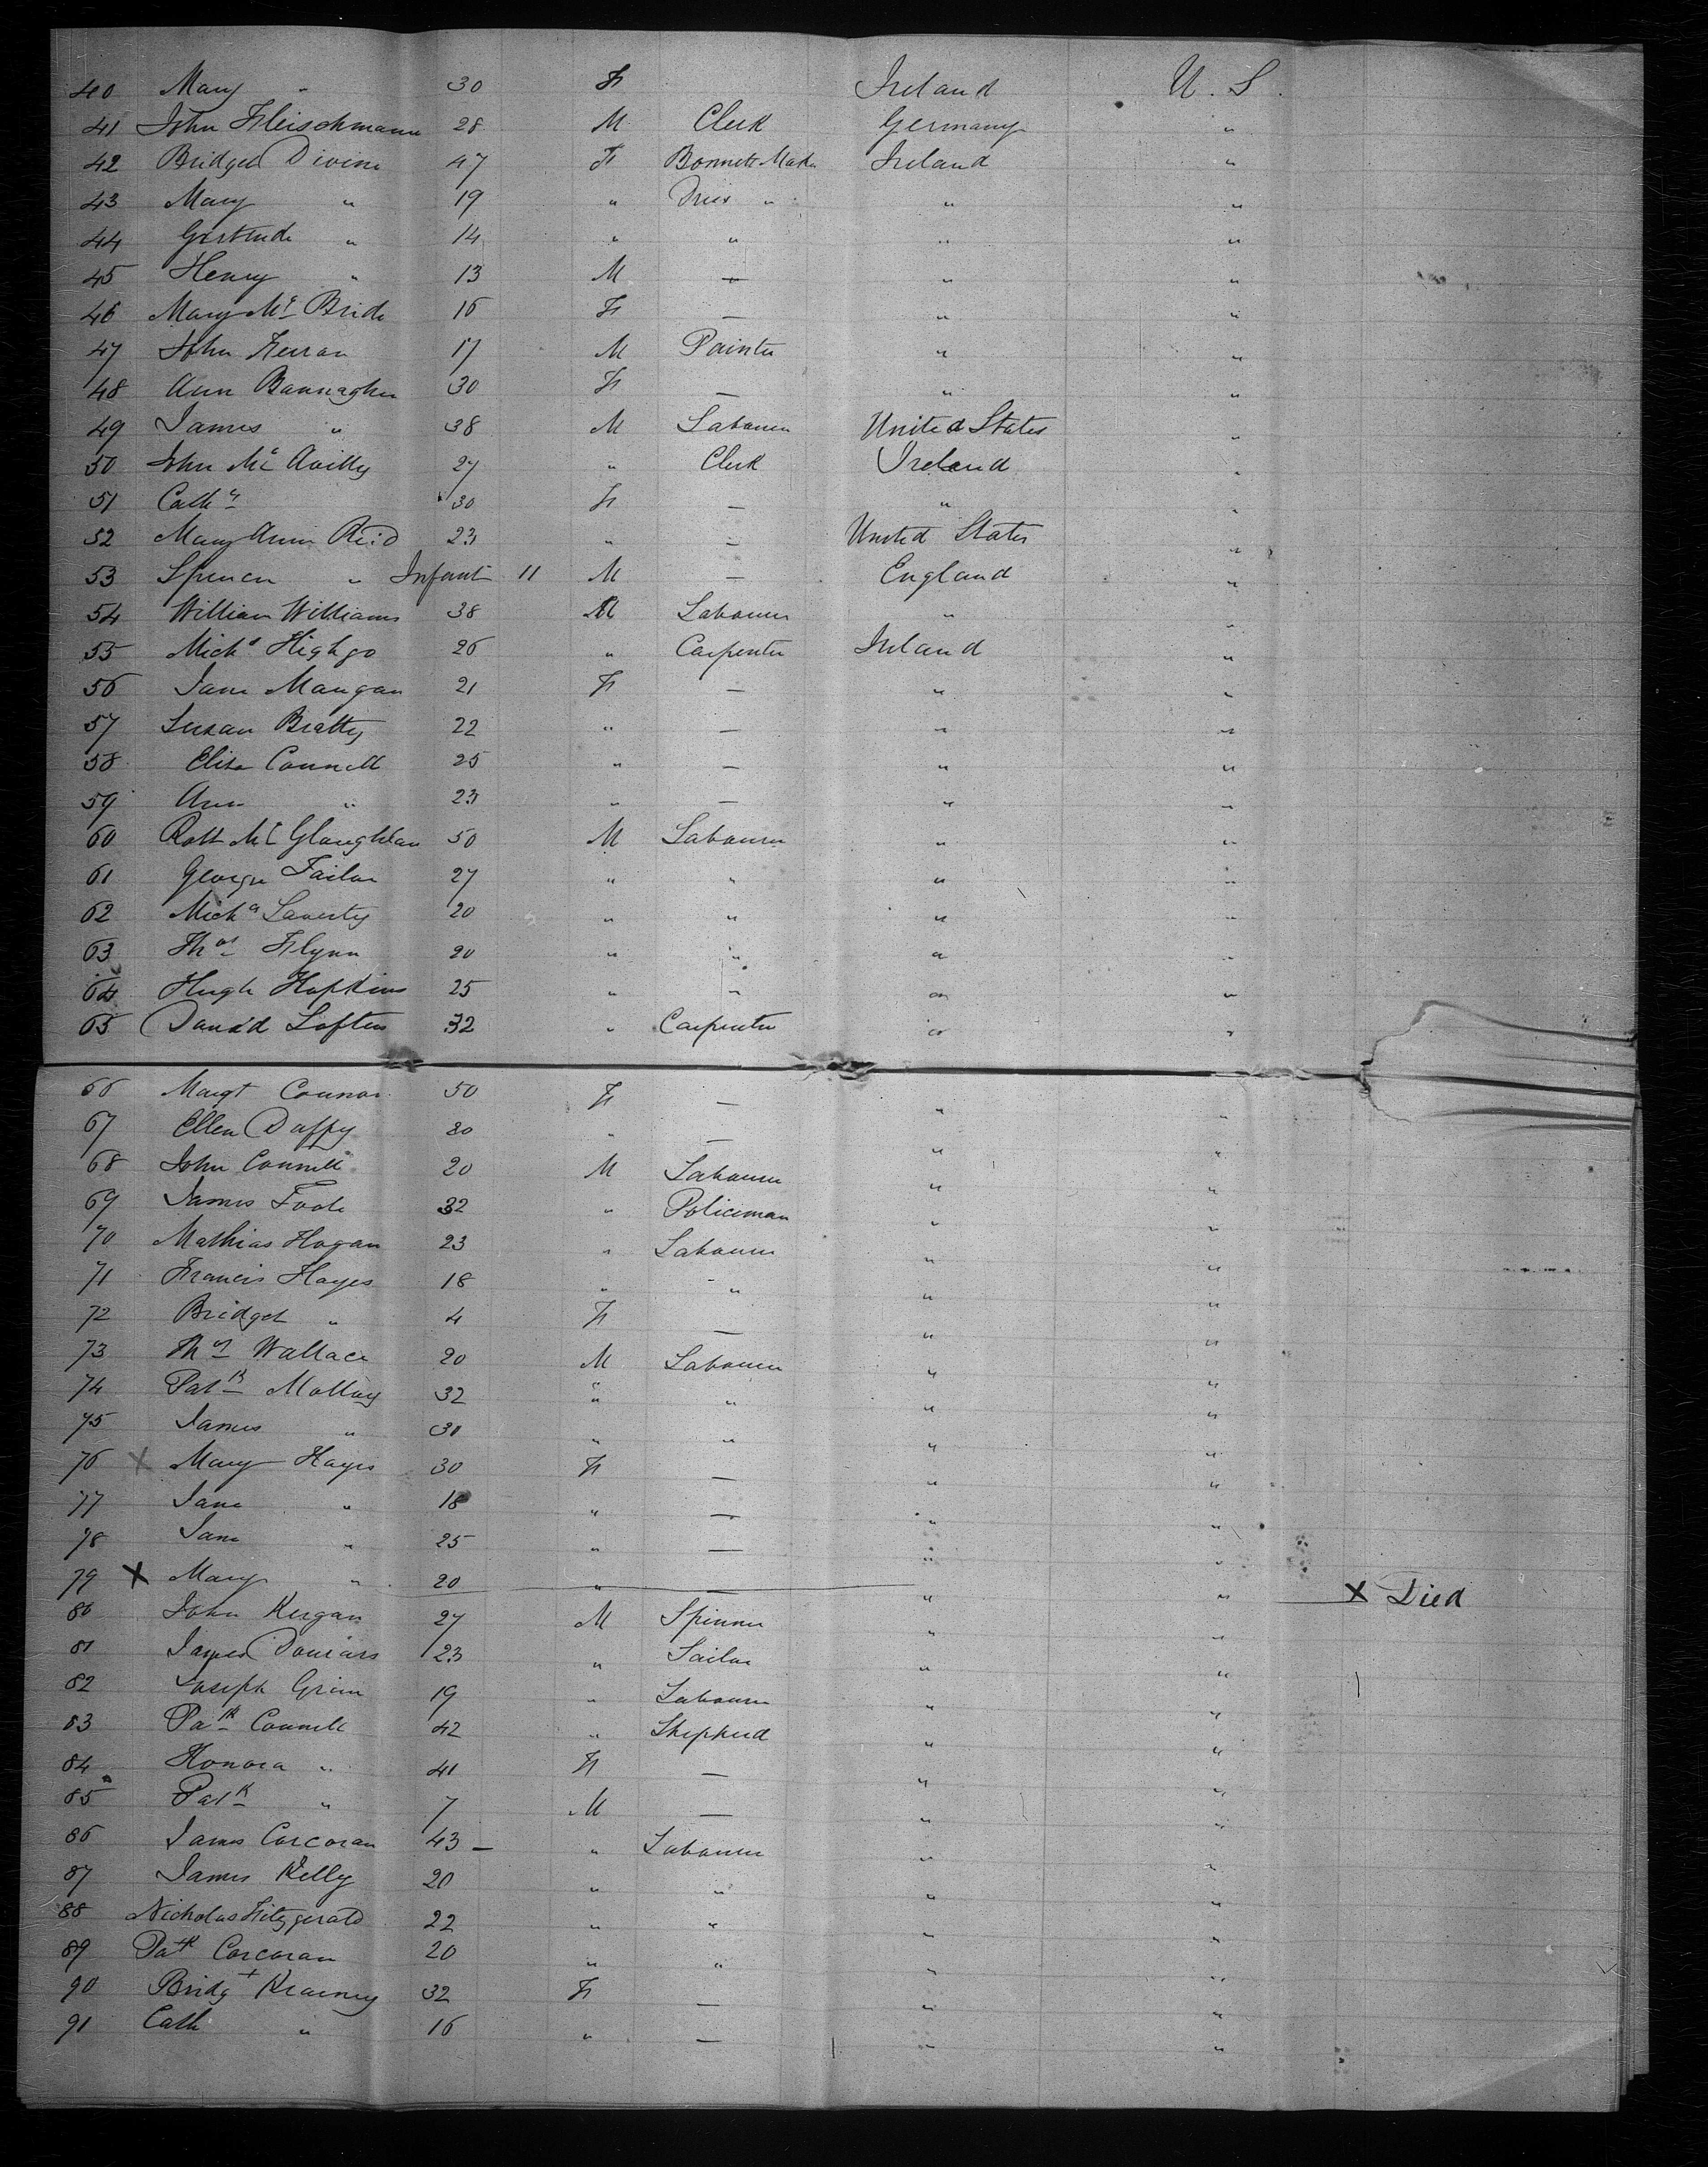 40 Mary " 30 F Ireland U. S.
41 John Fleischmann 28 M Clerk Germany "
42 Bridget Divine 47 F Bonnett Maker Ireland "
43 Mary " 19 " Dress " " "
44 Gertrude " 14 " " " "
45 Henry " 13 M — " "
46 Mary Mc Bride 16 F — " "
47 John 17 M Painter " "
48 Ann Bannagher 30 F — " "
49 James " 38 M Labourer United States "
50 John Mc Avilly 27 " Clerk Ireland "
51 Cath 30 F — " "
52 Mary Ann Reid 23 " — United States "
53 Spencer " Infant 11 M — England "
54 William Williams 38 M Labourer " "
55 Mich Highgo 26 " Carpenter Ireland "
56 Jane Mangan 21 F — " "
57 Susan Beatty 22 " — " "
58 Eliza Connell 25 " — " "
59 Ann " 23 " — " "
60 Robt Mc Glaughlan 50 M Labourer " "
61 George Tailor 27 " " " "
62 Mich Laverty 20 " " " "
63 Thos Flynn 20 " " " "
64 Hugh Hopkins 25 " " " "
65 David Loftus 32 " Carpenter " "
66 Margt Connor 50 F — " "
67 Ellen Duffy " — " "
68 John Connell 20 M Labourer " "
69 James Toole 32 " Policeman " "
70 Mathias Hogan 23 " Labourer " "
71 Francis Hayes 18 " " " "
72 Bridget " 4 F — " "
73 Thos Wallace 20 M Labourer " "
74 Patk Molloy 32 " " " "
75 James " 30 " " " "
76 X Mary Hayes 30 F — " "
77 Jane " 18 " — " "
78 Jane " 25 " — " "
79 X Mary " 20 " — " " X Died
80 John Kergan 27 M Spinner " "
81 James 23 " Sailor " "
82 Joseph Grim 19 " Labourer " "
83 Patk Connell 42 " Shepherd " "
84 Honora " 41 F — " "
85 Patk " 7 M — " "
86 James Corcoran 43 — " Labourer " "
87 James Kelly 20 " " " "
88 Nicholas Fitzgerald 22 " " " "
89 Patk Corcoran 20 " " " "
90 Bridgt Kearney 32 F — " "
91 Cath " 16 " — " "